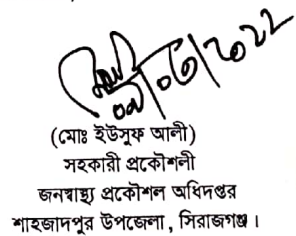 (মোঃ ইউসুফ আলী)
সহকারী প্রকৌশলী
জনস্বাস্থ্য প্রকৌশল অধিদপ্তর
শাহজাদপুর উপজেলা, সিরাজগঞ্জ।